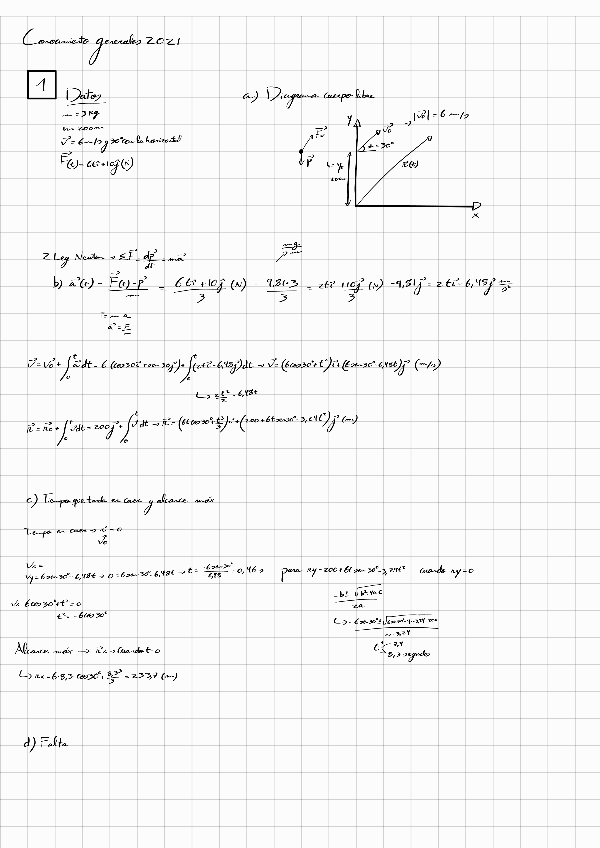 Conocimiento generales 2021
1
Datos
m = 3 kg
v⃗ = 6 m/s y 30° con la horizontal
F⃗(t) = 6ti⃗ + 10j⃗ (N)
a) Diagrama cuerpo libre
y
v⃗₀ → |v⃗₀| = 6 m/s
α = 30°
F⃗
P⃗
r⃗(t)
x
2 Ley Newton → ΣF⃗ = dp⃗/dt = ma⃗
mg
b) a⃗(t) = (F⃗(t) - P⃗)/m = (6ti⃗ + 10j⃗)/3 (N) - 9,81·3/3 = 2ti⃗ + 10j⃗/3 (N) - 9,81j⃗ = 2ti⃗ - 6,48j⃗ m/s²
v⃗ = v⃗₀ + ∫₀ᵗ a⃗dt = 6(cos30i⃗ + sen30j⃗) + ∫₀ᵗ(2ti⃗ - 6,48j⃗)dt → v⃗ = (6cos30° + t²)i⃗ + (6sen30° - 6,48t)j⃗ (m/s)
↳ 2t²/2 - 6,48t
r⃗ = r⃗₀ + ∫₀ᵗ v⃗dt = 200j⃗ + ∫₀ᵗ v⃗dt → r⃗ = (6tcos30° + t³/3)i⃗ + (200 + 6tsen30° - 3,24t²)j⃗ (m)
c) Tiempo que tarda en caer y alcance máx
Tiempo en caer →
vy = 6sen30° - 6,48t → 0 = 6sen30° - 6,48t → t = 6sen30°/6,48 = 0,46 s para ry = 200 + 6tsen30° - 3,24t² cuando ry = 0
-b ± √b²-4ac
2a
6cos30° + t² = 0
t² = -6cos30°
8,3 segundos
Alcance máx →
↳ rx = 6·8,3cos30° + 8,3³/3 = 233,7 (m)
d) Falta